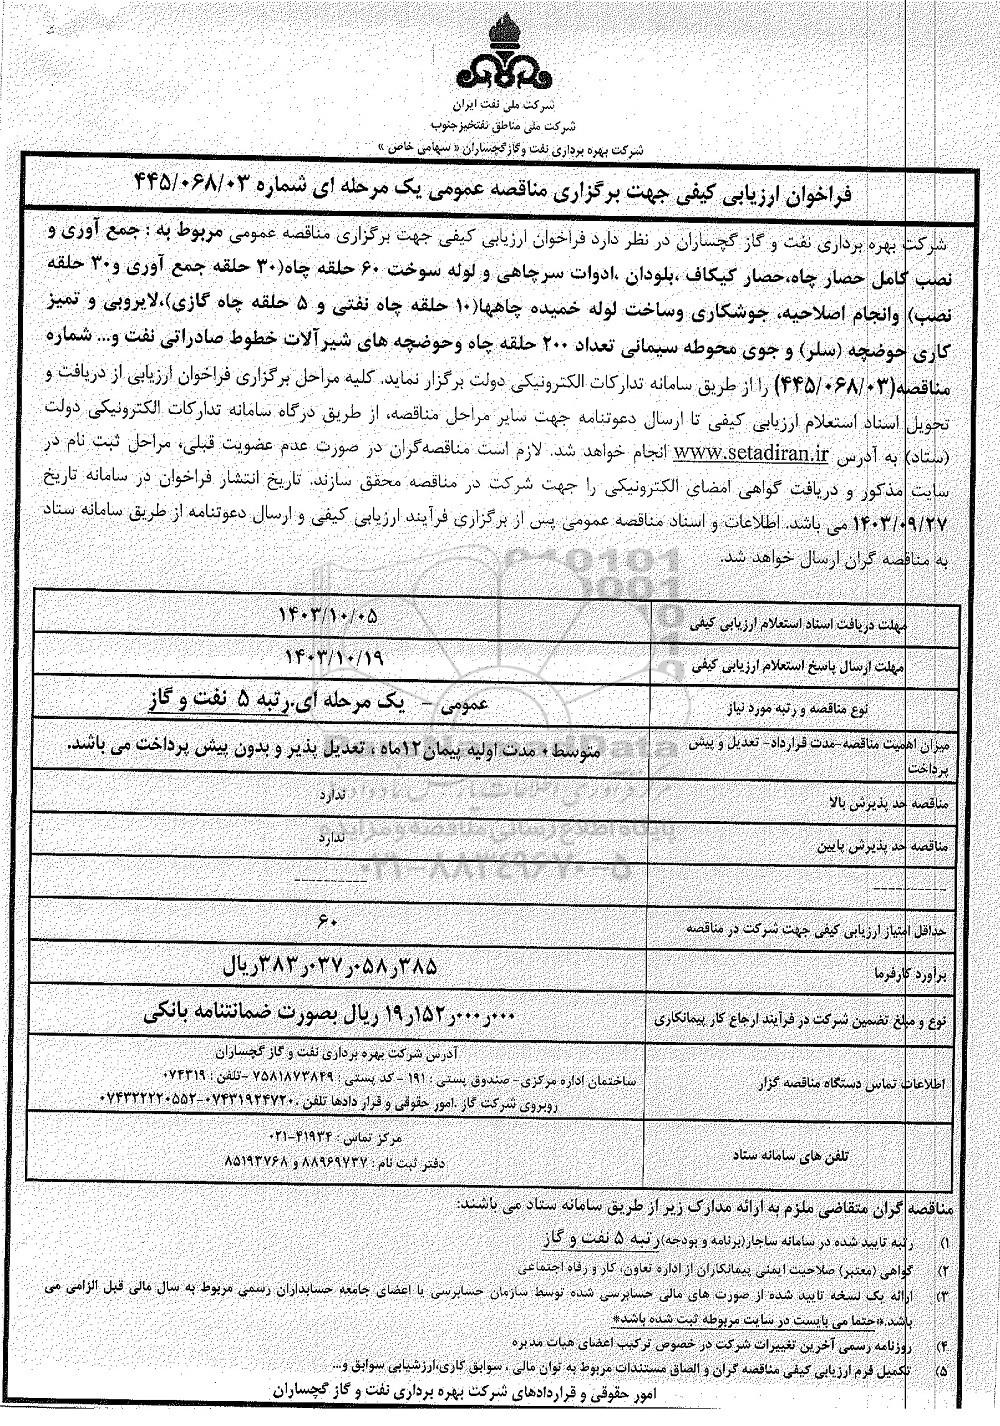 شرکت ملی نفت ایران
شرکت ملی مناطق نفتخیز جنوب
شرکت بهره برداری نفت و گاز گچساران « سهامی خاص »
فراخوان ارزیابی کیفی جهت برگزاری مناقصه عمومی یک مرحله ای شماره ۴۴۵/۰۶۸/۰۳
شرکت بهره برداری نفت و گاز گچساران در نظر دارد فراخوان ارزیابی کیفی جهت برگزاری مناقصه عمومی مربوط به : جمع آوری و
نصب کامل حصار چاه،حصار کیکاف ،بلودان ،ادوات سرچاهی و لوله سوخت ۶۰ حلقه چاه(۳۰ حلقه جمع آوری و۳۰ حلقه
نصب) وانجام اصلاحیه، جوشکاری وساخت لوله خمیده چاهها(۱۰ حلقه چاه نفتی و ۵ حلقه چاه گازی)،لایروبی و تمیز
کاری حوضچه (سلر) و جوی محوطه سیمانی تعداد ۲۰۰ حلقه چاه وحوضچه های شیرآلات خطوط صادراتی نفت و... شماره
مناقصه(۴۴۵/۰۶۸/۰۳) را از طریق سامانه تدارکات الکترونیکی دولت برگزار نماید. کلیه مراحل برگزاری فراخوان ارزیابی از دریافت و
تحویل اسناد استعلام ارزیابی کیفی تا ارسال دعوتنامه جهت سایر مراحل مناقصه، از طریق درگاه سامانه تدارکات الکترونیکی دولت
(ستاد) به آدرس www.setadiran.ir انجام خواهد شد. لازم است مناقصه‌گران در صورت عدم عضویت قبلی، مراحل ثبت نام در
سایت مذکور و دریافت گواهی امضای الکترونیکی را جهت شرکت در مناقصه محقق سازند. تاریخ انتشار فراخوان در سامانه تاریخ
۱۴۰۳/۰۹/۲۷ می باشد. اطلاعات و اسناد مناقصه عمومی پس از برگزاری فرآیند ارزیابی کیفی و ارسال دعوتنامه از طریق سامانه ستاد
به مناقصه گران ارسال خواهد شد.
مهلت دریافت اسناد استعلام ارزیابی کیفی ۱۴۰۳/۱۰/۰۵
مهلت ارسال پاسخ استعلام ارزیابی کیفی ۱۴۰۳/۱۰/۱۹
نوع مناقصه و رتبه مورد نیاز عمومی - یک مرحله ای.رتبه ۵ نفت و گاز
میزان اهمیت مناقصه-مدت قرارداد- تعدیل و پیش
پرداخت متوسط۰ مدت اولیه پیمان۱۲ماه ، تعدیل پذیر و بدون پیش پرداخت می باشد.
مناقصه حد پذیرش بالا ندارد
مناقصه حد پذیرش پایین ندارد
---------- ----------
حداقل امتیاز ارزیابی کیفی جهت شرکت در مناقصه ۶۰
برآورد کارفرما ۳۸۳٫۰۳۷٫۰۵۸٫۳۸۵ریال
نوع و مبلغ تضمین شرکت در فرآیند ارجاع کار پیمانکاری ۱۹٫۱۵۲٫۰۰۰٫۰۰۰ ریال بصورت ضمانتنامه بانکی
اطلاعات تماس دستگاه مناقصه گزار آدرس شرکت بهره برداری نفت و گاز گچساران
ساختمان اداره مرکزی- صندوق پستی : ۱۹۱ - کد پستی : ۷۵۸۱۸۷۳۸۴۹ -تلفن : ۰۷۴۳۱۹
روبروی شرکت گاز .امور حقوقی و قرار دادها تلفن .۰۷۴۳۱۹۲۴۷۲۰-۰۷۴۳۲۲۲۰۵۵۲
تلفن های سامانه ستاد مرکز تماس : ۴۱۹۳۴-۰۲۱
دفتر ثبت نام : ۸۸۹۶۹۷۳۷ و ۸۵۱۹۳۷۶۸
مناقصه گران متقاضی ملزم به ارائه مدارک زیر از طریق سامانه ستاد می باشند:
۱) رتبه تایید شده در سامانه ساجار(برنامه و بودجه)رتبه ۵ نفت و گاز
۲) گواهی (معتبر) صلاحیت ایمنی پیمانکاران از اداره تعاون، کار و رفاه اجتماعی
۳) ارائه یک نسخه تایید شده از صورت های مالی حسابرسی شده توسط سازمان حسابرسی یا اعضای جامعه حسابداران رسمی مربوط به سال مالی قبل الزامی می
باشد.*حتما می بایست در سایت مربوطه ثبت شده باشد*
۴) روزنامه رسمی آخرین تغییرات شرکت در خصوص ترکیب اعضای هیات مدیره
۵) تکمیل فرم ارزیابی کیفی مناقصه گران و الصاق مستندات مربوط به توان مالی ، سوابق کاری،ارزشیابی سوابق و...
امور حقوقی و قراردادهای شرکت بهره برداری نفت و گاز گچساران
پایگاه اطلاع رسانی مناقصه و مزایده
۰۲۱-۸۸۳۴۹۶۷۰-۵